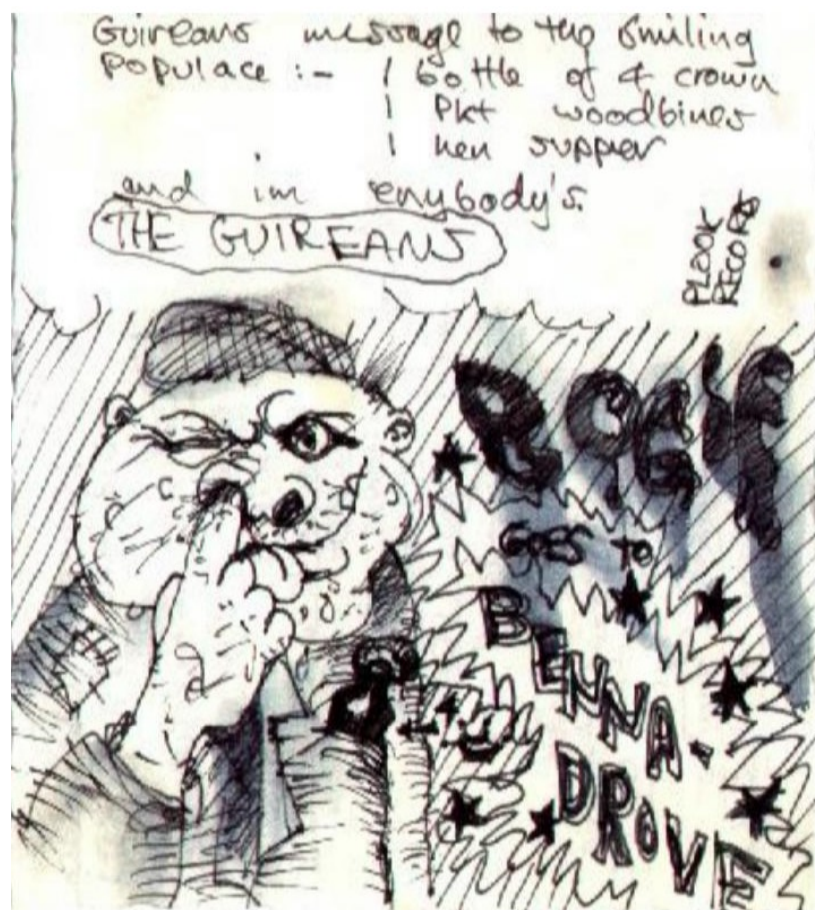 Guireans message to the smiling
populace :- 1 bottle of 4 crown
1 Pkt woodbines
1 hen supper
and im enybody's.
THE GUIREANS
PLOOK
RECORDS
BOGIE
GOES TO
BENNA-
DROVE